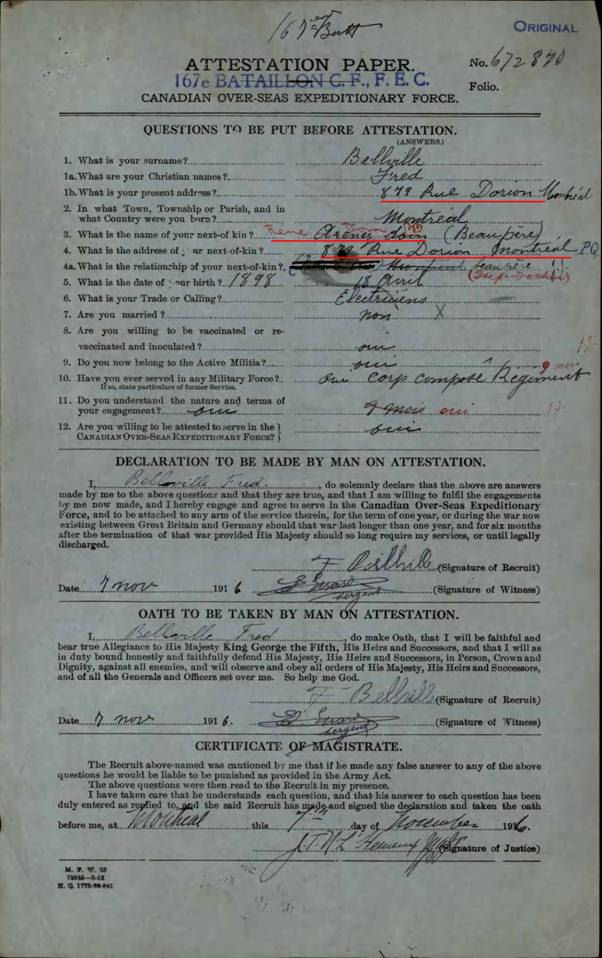 167 Batt
ORIGINAL
ATTESTATION PAPER. No. 672890
167e BATAILLON C. F., F. E. C. Folio.
CANADIAN OVER-SEAS EXPEDITIONARY FORCE.
QUESTIONS TO BE PUT BEFORE ATTESTATION.
(ANSWERS.)
1. What is your surname? Bellville
1a. What are your Christian names? Fred
1b. What is your present address? 879 Rue Dorion Montréal
2. In what Town, Township or Parish, and in
what Country were you born? Montréal
3. What is the name of your next-of-kin? Rene (Beau père)
4. What is the address of your next-of-kin? 879 Rue Dorion Montréal P.Q.
4a. What is the relationship of your next-of-kin? beau père
5. What is the date of your birth? 1898 18 Avril
6. What is your Trade or Calling? Electriciens
7. Are you married? non X
8. Are you willing to be vaccinated or re-
vaccinated and inoculated? oui
9. Do you now belong to the Active Militia? oui
10. Have you ever served in any Military Force? Oui Corp Composé Regiment 9 mois
If so, state particulars of former Service.
11. Do you understand the nature and terms of
your engagement? oui 9 mois oui
12. Are you willing to be attested to serve in the
CANADIAN OVER-SEAS EXPEDITIONARY FORCE? oui
DECLARATION TO BE MADE BY MAN ON ATTESTATION.
I, Bellville Fred, do solemnly declare that the above are answers
made by me to the above questions and that they are true, and that I am willing to fulfil the engagements
by me now made, and I hereby engage and agree to serve in the Canadian Over-Seas Expeditionary
Force, and to be attached to any arm of the service therein, for the term of one year, or during the war now
existing between Great Britain and Germany should that war last longer than one year, and for six months
after the termination of that war provided His Majesty should so long require my services, or until legally
discharged.
F Bellville (Signature of Recruit)
Date 7 nov 1916 sergent (Signature of Witness)
OATH TO BE TAKEN BY MAN ON ATTESTATION.
I, Bellville Fred, do make Oath, that I will be faithful and
bear true Allegiance to His Majesty King George the Fifth, His Heirs and Successors, and that I will as
in duty bound honestly and faithfully defend His Majesty, His Heirs and Successors, in Person, Crown and
Dignity, against all enemies, and will observe and obey all orders of His Majesty, His Heirs and Successors,
and of all the Generals and Officers set over me. So help me God.
F Bellvill (Signature of Recruit)
Date 7 nov 1916. sergent (Signature of Witness)
CERTIFICATE OF MAGISTRATE.
The Recruit above-named was cautioned by me that if he made any false answer to any of the above
questions he would be liable to be punished as provided in the Army Act.
The above questions were then read to the Recruit in my presence.
I have taken care that he understands each question, and that his answer to each question has been
duly entered as replied to, and the said Recruit has made and signed the declaration and taken the oath
before me, at Montréal this 7th day of November 1916.
(Signature of Justice)
M. F. W. 23
H. Q. 1772-39-841